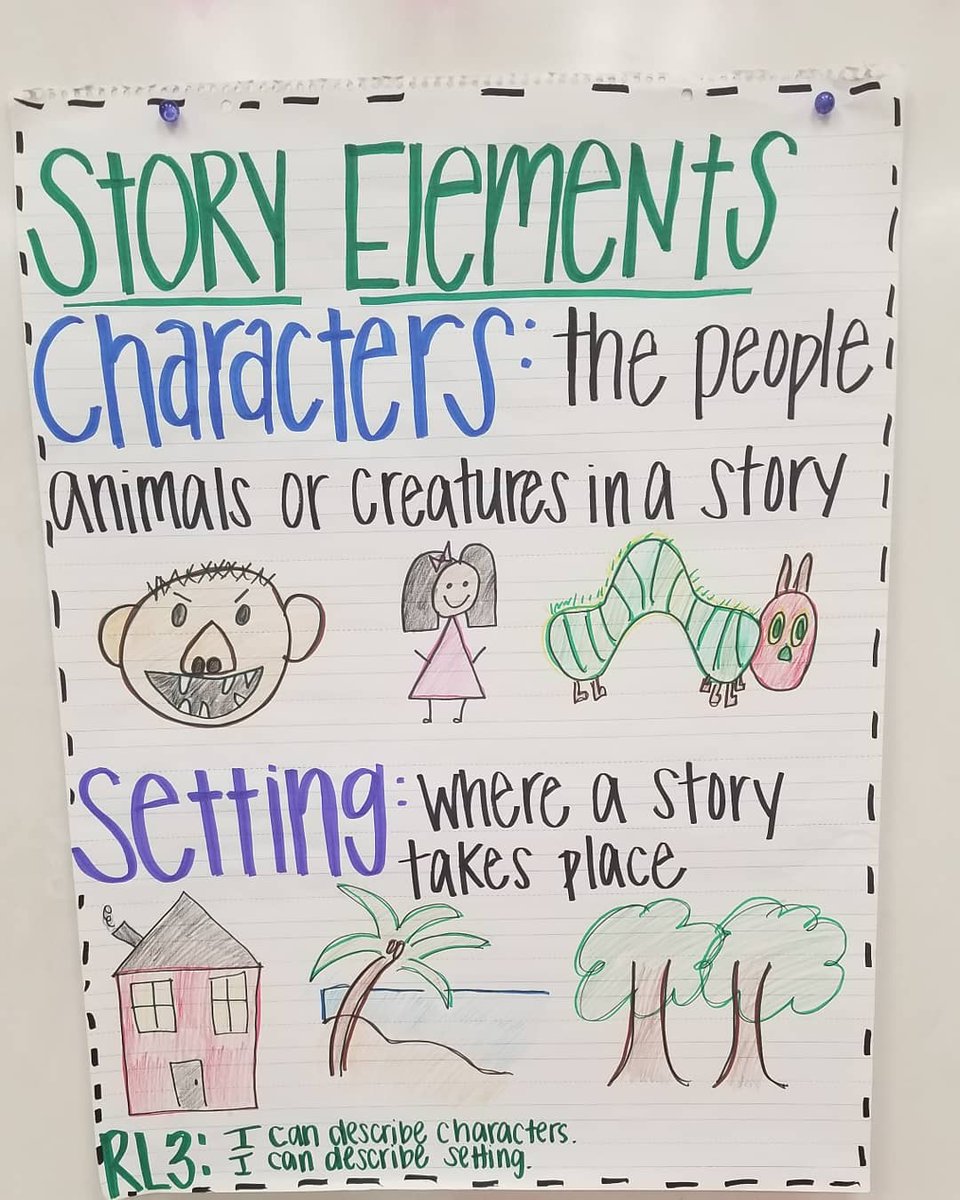 Story Elements
Characters: the people
animals or creatures in a story
Setting: where a story
takes place
RL3: I can describe characters.
I can describe setting.